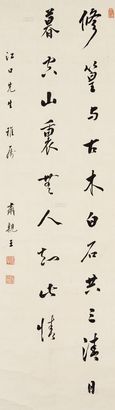 修篁与古木白石共三清日
暮空山裏無人知此情
江口先生雅属
肅親王